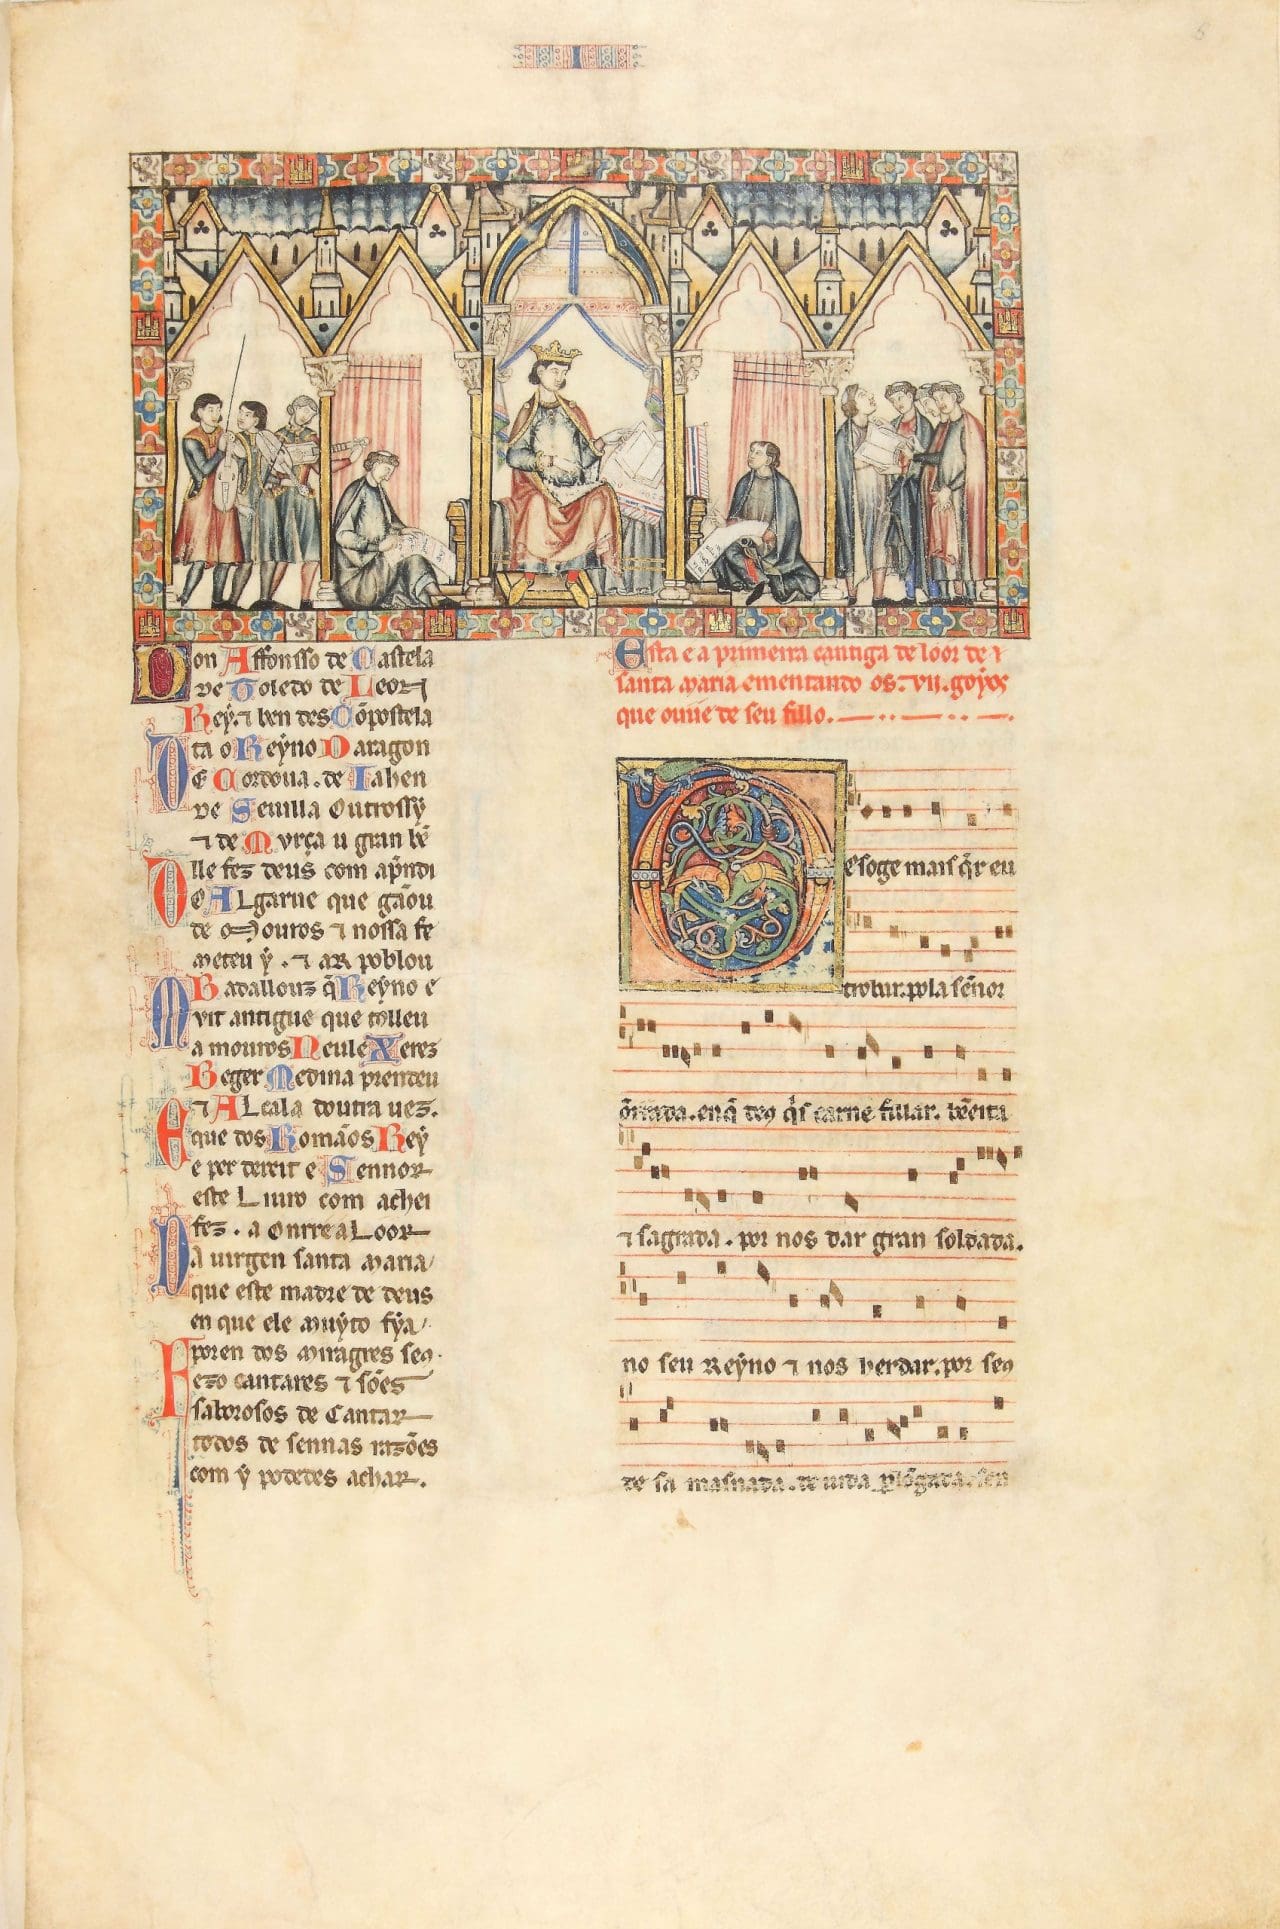 I
Don Affonsso de Castela
de Toledo de Leon
Rey. ⁊ ben des Cõpostela
ta o Reyno Daragon
De Cordoua. de Iahen
de Seuilla Outrossy
⁊ de Murça u gran bẽ
lle fez deus com ap̃ndi
Do ALgarue que gãou
de Mouros ⁊ nossa fe
meteu y. ⁊ AR poblou
Badallouz q̃ Reyno e
Muit antigue que tolleu
a mouros Neul e Xerez
Beger Medina prendeu
⁊ ALcala doutra uez.
E que dos Romãos Rey
e per dereit e Sennor
este Liuro com achei
fez. a Onrr e a Loor
Da uirgen santa maria
que este madre de deus
en que ele muyto fya
poren dos miragres seꝯ
Fezo cantares ⁊ sões
saborosos de Cantar
todos de sennas razões
com y podedes achar.
Esta e a primeira cantiga de loor de
santa maria ementando os. vii. goyos
que ouue de seu fillo.
Des oge mais q̃r eu
trobar. pola señor
õrrada. en q̃ deꝯ q̃s carne fillar. bẽeita
⁊ sagrada. por nos dar gran soldada.
no seu Reyno ⁊ nos herdar. por seꝯ
de sa masnada. de uida plõgada. sen